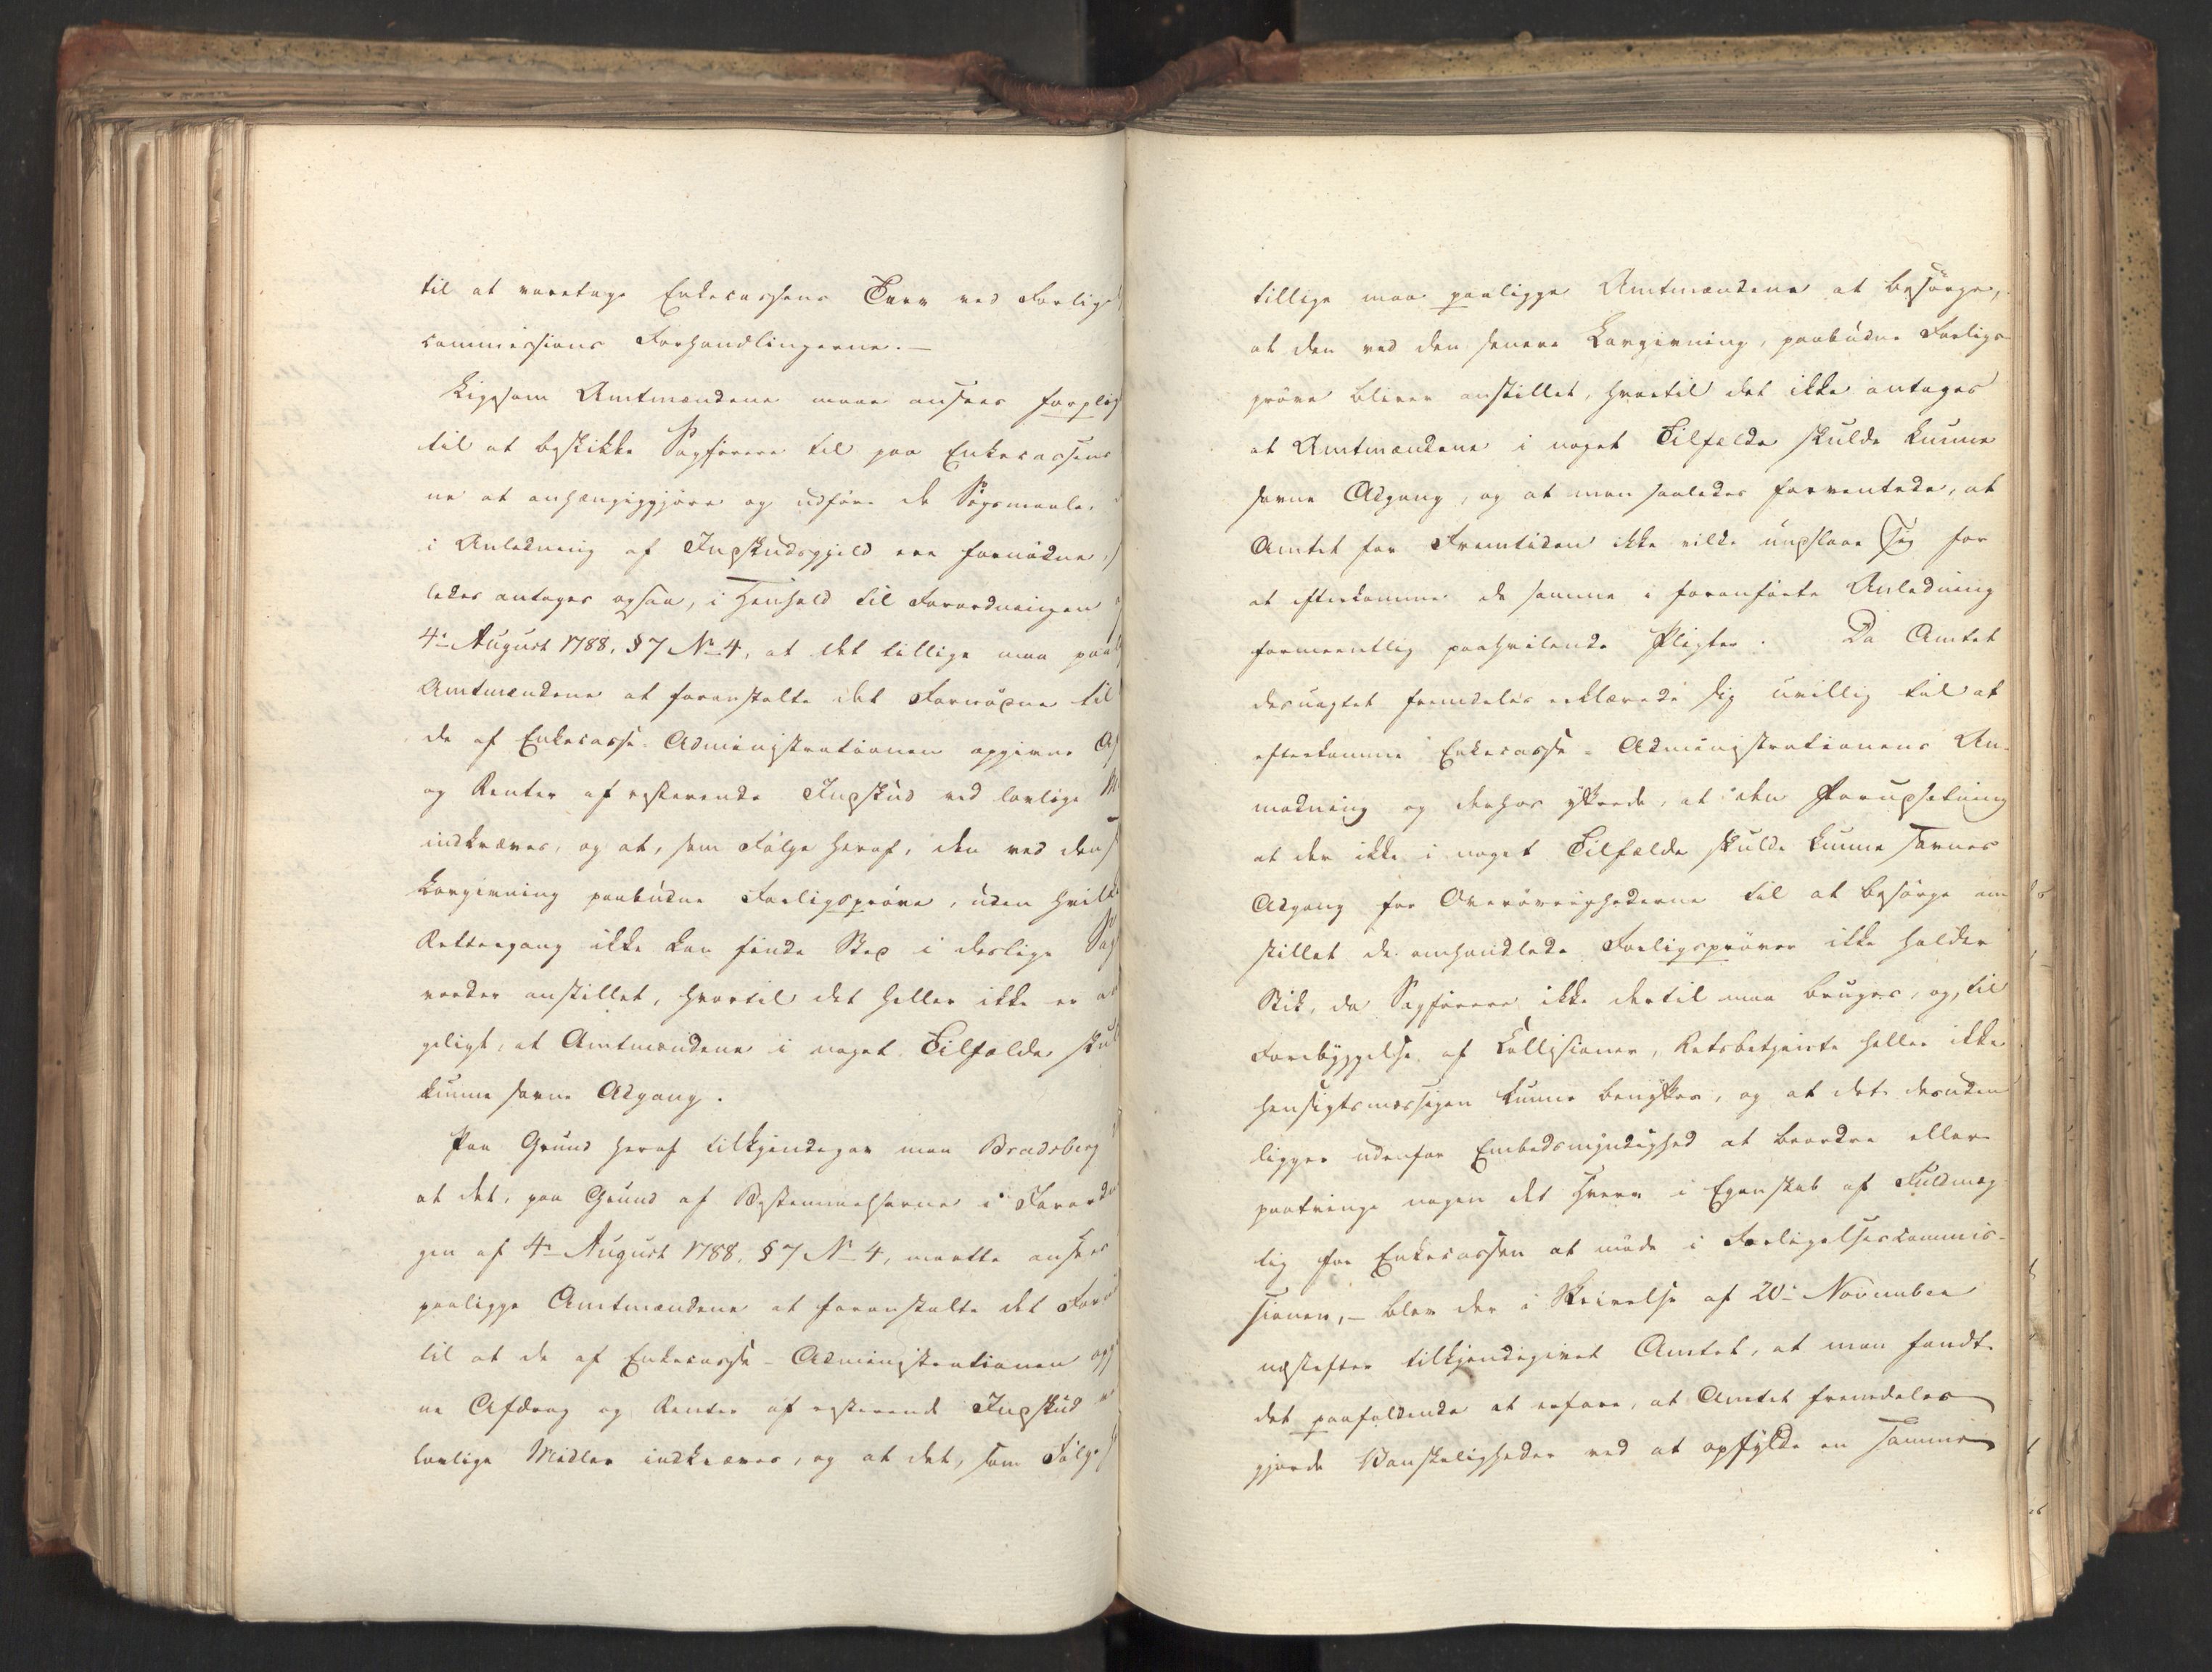 til at varetage Enkecassens Tarv ved Forligs
commissions Forhandlingerne. —
Ligesom Amtmændene maae ansees forplig
til at beskikke Sagførere til paa Enkecassens
ne at anhængiggjøre og udføre de Søgsmaale,
i Anledning af Indskudsgjeld ere fornødne,
ledes antages ogsaa, i Henhold til Forordningen
4de August 1788, § 7 No 4, at det tillige maa paa
Amtmændene at foranstalte det Fornødne til
de af Enkecasse-Administrationen opgivne Af
og Renter af resterende Indskud ved lovlige M
indkræves, og at, som Følge heraf, den ved den
Lovgivning paabudne Forligsprøve, uden hvilk
Rettergang ikke kan finde Sted i deslige Sag
vorder anstillet, hvortil det heller ikke er
geligt, at Amtmændene i noget Tilfælde skul
kunne savne Adgang.
Paa Grund heraf tilkjendegav man Bradsberg
at det, paa Grund af Bestemmelserne i Forordn
gen af 4de August 1788, § 7 No 4, maatte ansees
paaligge Amtmændene at foranstalte det Forn
til at de af Enkecasse-Administrationen opg
ne Afdrag og Renter af resterende Indskud
lovlige Midler indkræves, og at det, som Følge
tillige maa paaligge Amtmændene at besørge,
at den ved den senere Lovgivning, paabudne Forligs-
prøve bliver anstillet, hvortil det ikke antages
at Amtmændene i noget Tilfælde skulde kunne
savne Adgang, og at man saaledes forventede, at
Amtet for Fremtiden ikke vilde undslaae sig for
at efterkomme de samme i foranførte Anledning
formeentlig paahvilende Pligter. Da Amtet
desuagtet fremdeles erklærede sig uvillig til at
efterkomme Enkecasse-Administrationens An-
modning og derhos yttrede, at den Forudsætning
at der ikke i noget Tilfælde skulde kunne savnes
Adgang for Overøvrighederne til at besørge an-
stillet de omhandlede Forligsprøver ikke holder
Stik, da Sagførere ikke dertil maa bruges, og, til
Forebyggelse af Collisioner, Retsbetjente heller ikke
hensigtsmæssigen kunne benyttes, og at det desuden
ligger udenfor Embedsmyndighed at beordre eller
paatvinge nogen det Hverv i Egenskab af Fuldmæg-
tig for Enkecassen at møde i Forligelsescommis-
sionen, — blev der i Skrivelse af 20de November
næstefter tilkjendegivet Amtet, at man fandt
det paafaldende at erfare, at Amtet fremdeles
gjorde Vanskeligheder ved at opfylde en samme